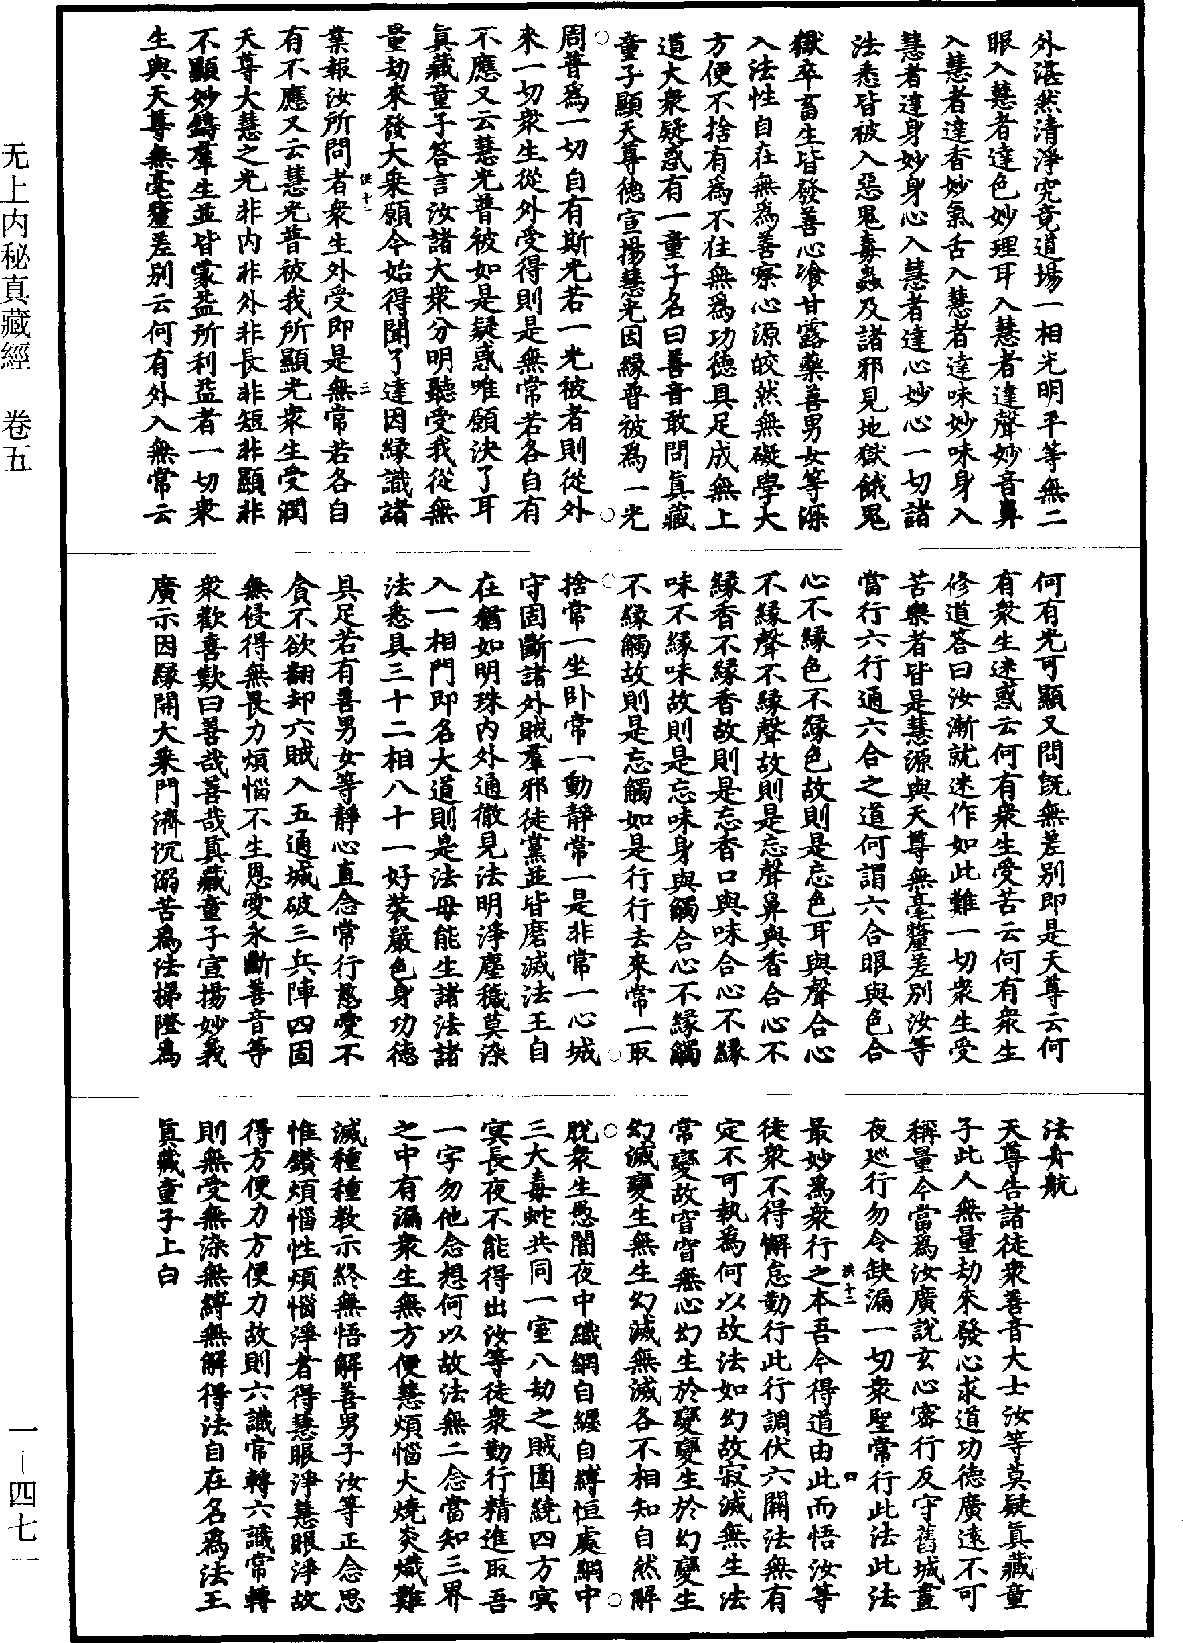 无上内秘真藏經　卷五
外湛然清淨究竟道場一相光明平等無二
眼入慧者達色妙理耳入慧者達聲妙音鼻
入慧者達香妙氣舌入慧者達味妙味身入
慧者達身妙身心入慧者達心妙心一切諸
法悉皆被入惡鬼毒蟲及諸邪見地獄餓鬼
獄卒畜生皆發善心飡甘露藥善男女等深
入法性自在無爲善察心源皎然無礙學大
方便不捨有爲不住無爲功德具足成無上
道大衆疑惑有一童子名曰善音敢問真藏
童子顯天尊德宣揚慧光因緣普被爲一光
周普爲一切自有斯光若一光被者則從外
來一切衆生從外受得則是無常若各自有
不應又云慧光普被如是疑惑唯願決了耳
真藏童子答言汝諸大衆分明聽受我從無
量劫來發大衆願今始得聞了達因緣識諸
業報汝所問者衆生外受即是無常若各自
有不應又云慧光普被我所顯光衆生受潤
天尊大慧之光非内非外非長非短非顯非
不顯妙鑄羣生並皆蒙益所利益者一切衆
生與天尊無毫釐差別云何有外入無常云
何有光可顯又問既無差別即是天尊云何
有衆生迷惑云何有衆生受苦云何有衆生
修道答曰汝漸就迷作如此難一切衆生受
苦樂者皆是慧源與天尊無毫釐差別汝等
當行六行通六合之道何謂六合眼與色合
心不緣色不緣色故則是忘色耳與聲合心
不緣聲不緣聲故則是忘聲鼻與香合心不
緣香不緣香故則是忘香口與味合心不緣
味不緣味故則是忘味身與觸合心不緣觸
不緣觸故則是忘觸如是行行去來常一取
捨常一坐卧常一動靜常一是非常一心城
守固斷諸外賊羣邪徒黨並皆磨滅法王自
在猶如明珠内外通徹見法明淨塵穢莫染
入一相門即名大道則是法母能生諸法諸
法悉具三十二相八十一好裝嚴色身功德
具足若有善男女等靜心直念常行慈愛不
貪不欲翻却六賊入五通城破三兵陣四固
無侵得無畏力煩惱不生恩愛永斷善音等
衆歡喜歎曰善哉善哉真藏童子宣揚妙義
廣示因緣開大乘門濟沉溺苦爲法梯隥爲
法舟航
天尊告諸徒衆善音大士汝等莫疑真藏童
子此人無量劫來發心求道功德廣遠不可
稱量今當爲汝廣說玄心密行反守舊城晝
夜巡行勿令缺漏一切衆聖常行此法此法
最妙爲衆行之本吾今得道由此而悟汝等
徒衆不得懈怠勤行此行調伏六關法無有
定不可執爲何以故法如幻故寂滅無生法
常變故窅窅無心幻生於變變生於幻變生
幻滅變生無生幻滅無滅各不相知自然解
脫衆生愚闇夜中織網自纏自縛恒處網中
三大毒蛇共同一室八劫之賊圍繞四方冥
冥長夜不能得出汝等徒衆勤行精進取吾
一字勿他念想何以故法無二念當知三界
之中有漏衆生無方便慧煩惱火燒炎熾難
滅種種教示終無悟解善男子汝等正念思
惟鑽煩惱性煩惱淨者得慧眼淨慧眼淨故
得方便力方便力故則六識常轉六識常轉
則無受無染無縛無解得法自在名爲法王
真藏童子上白
一－四七一